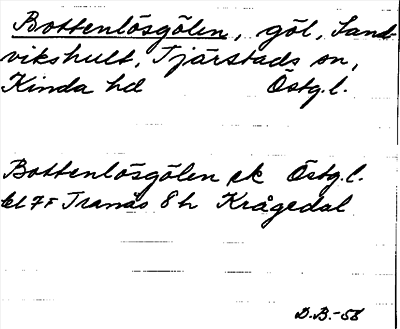 Bottenlösgölen, göl, Sand-
vikshult, Tjärstads sn,
Kinda hd Östg.l.
Bottenlösgölen ek Östg.l.
bl 7F Tranås 8h Krågedal
D.B.-58